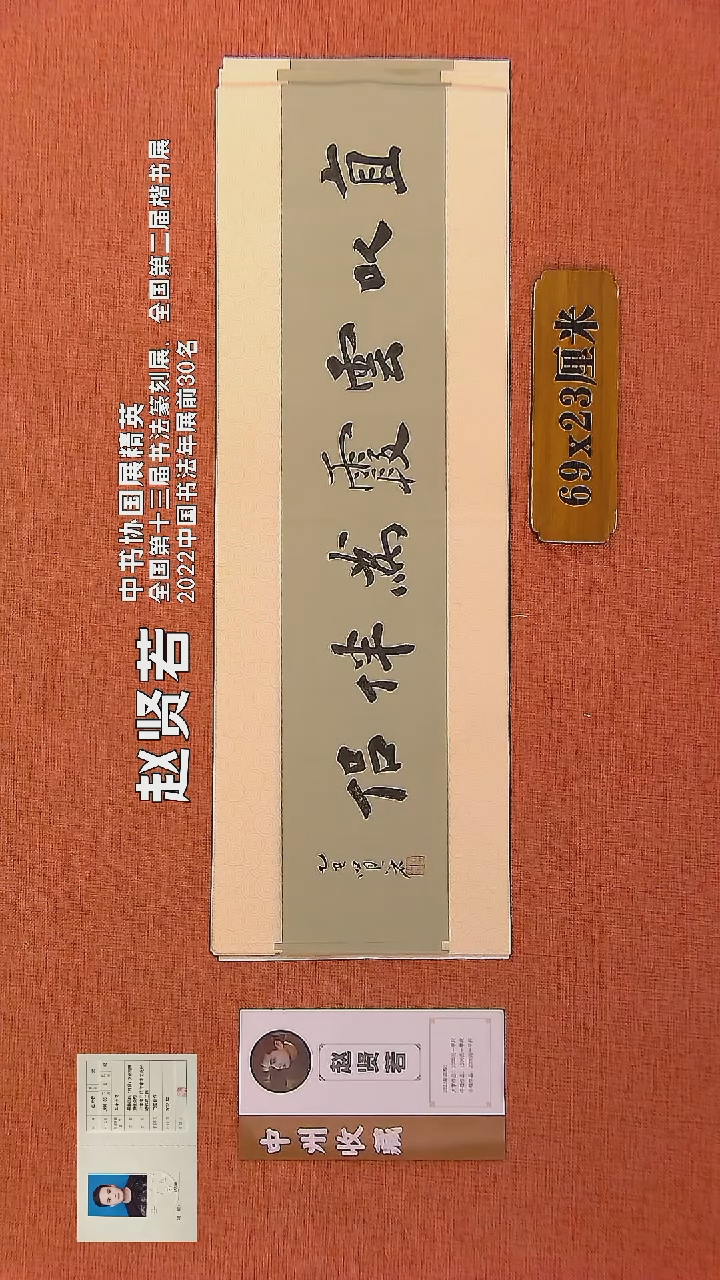 赵贤若
中书协国展精英
全国第十三届书法篆刻展、全国第二届楷书展
2022中国书法年展前30名
直以雲霞為伴侣
乙巳贤若
69x23厘米
赵贤若
中州收藏